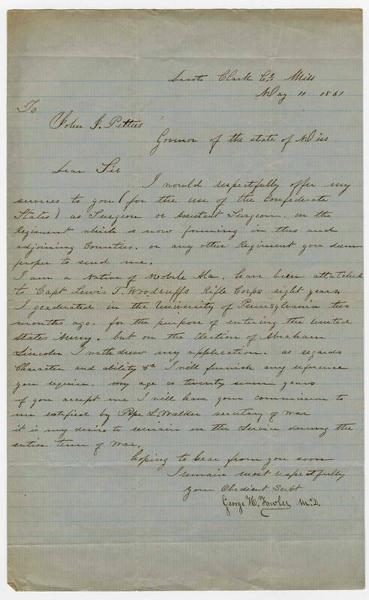 Clark Co Miss
May 11 1861
To
John J. Pettus
Govnor of the state of Miss
Dear Sir
I would respectfully offer my
services to you (for the use of the Confederate
States) as Surgeon or Assistant Surgeon. in the
Regiment which is now forming in this and
adjoining Counties. or any other Regiment you deem
proper to send me.
I am Native of Mobile Ala. been attatched
to Capt Lewis T. Woodruffs Rifle Corps eight years
I graduated in the University of Pennsylvania two
months ago. for the purpose of entering the United
States Army. but on the Election of Abraham
Lincoln I withdrew my application. as regards
Character and ability &c I will furnish any refference
you require. my age is twenty years
if you accept me I will have your commission to
me ratified by Pope L. Walker secretary of war
it is my desire to remain in the Service during the
entire term of War.
hoping to hear from you soon
I remain most respectfully
your Obedient Servt
George W. Fowler M.D.